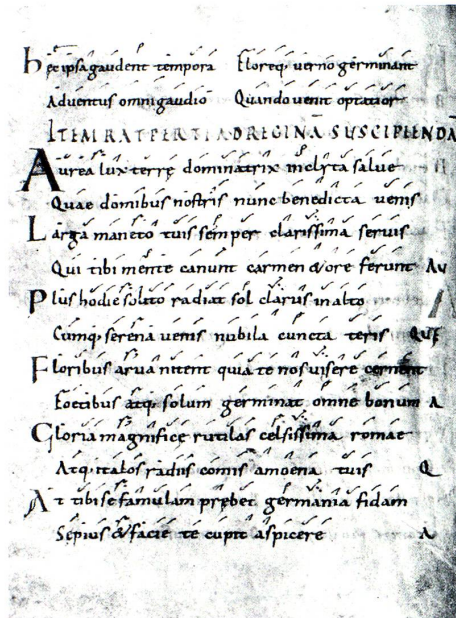 Hęc ipsa gaudent tempora Floreq; verno germinant
Adventus omni gaudio Quando venit optatior
ITEM RATPERTI AD REGINĀ SUSCIPIENDĀ
Aurea lux terrę dominatrix inclyta salve
Quae domibus nostris nunc benedicta venis
Larga maneto tuis semper clarissima servis
Qui tibi mente canunt carmen & ore ferunt Au
Plus hodie solito radiat sol clarus in alto
Cumq; serena venis nubila cuncta teris QUE
Floribus arva nitent quia te nos visere
Foetibus atq; solum germinat omne bonum A
Gloria magnificę rutilas celsissima romae
Atq; italos radiis comis amoena tuis Q
At tibi se famulam prębet germania fidam
Sepius & facie te cupit aspicere A